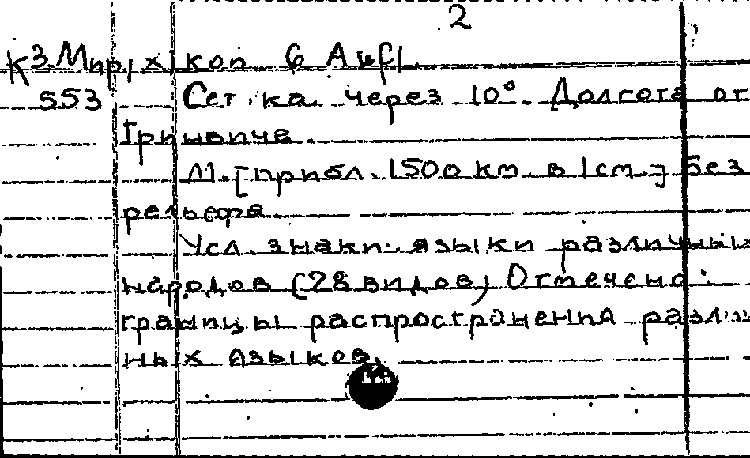 2
К3.Мир, х
553
Сетка через 10°. Долгота от
Гринвича.
М. [прибл. 1500 км в 1 см.] Без
рельефа.
Усл. знаки: языки различных
народов (28 видов) Отмечено:
границы распространения различ
ных языков.